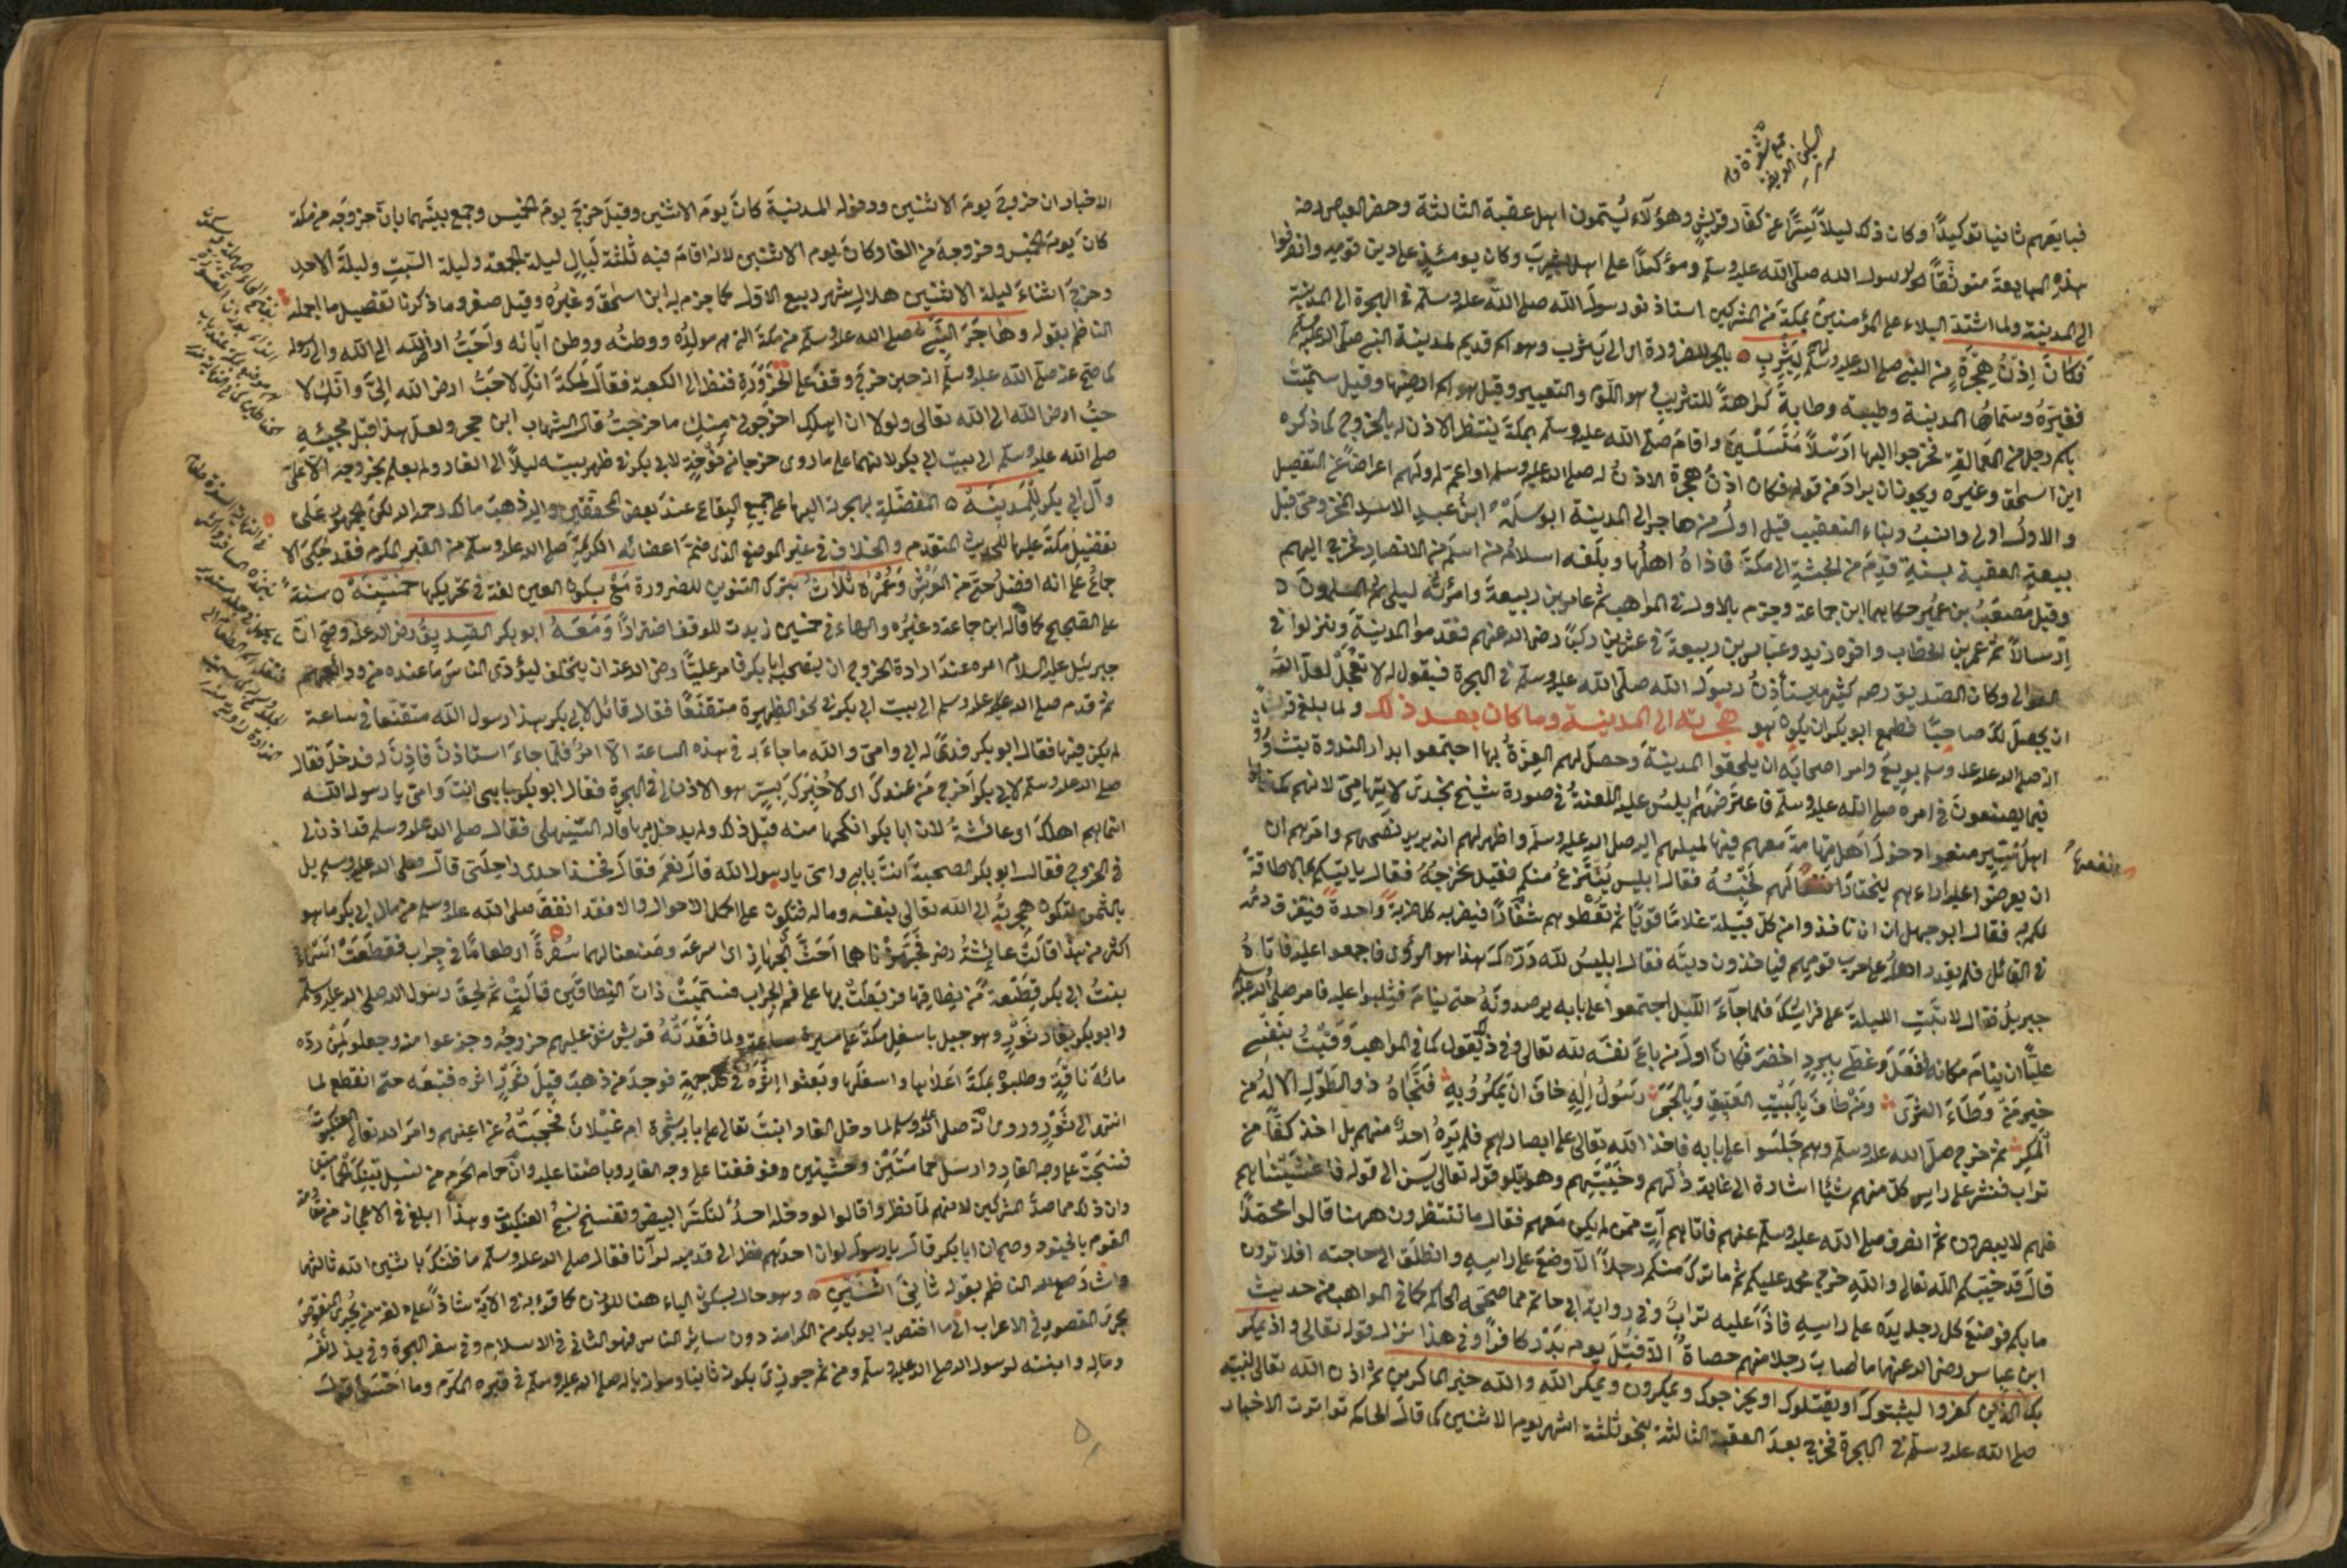 فبايعهم ثانيا توكيدًا وكان ذلك ليلاً سِرًّا عن كفار قريش وهؤلاء يُسَمَّون اهل عقبة الثالثة وحضر العباس رضه
هذه المبايعة متوثقًا لرسول الله صلى الله عليه وسلم ومؤكدًا على اهل يثرب وكان يومئذ على دين قومه وانصرفوا
الى المدينة ولما اشتد البلاء على المؤمنين بمكة من المشركين استاذنوا رسول الله صلى الله عليه وسلم في الهجرة الى المدينة
فكان اذن هجرة من النبي صلى الله عليه وسلم لهم ليثرب بالجر للضرورة اى الى يثرب وهو اسم قديم لمدينة النبي صلى الله عليه وسلم
فغيّره وسماها المدينة وطيبة وطابة كراهة للتثريب هو اللوم والتعيير وقيل هو اسم ارضها وقيل سميت
باسم رجل من العمالقة فخرجوا اليها ارسالاً متسلسلين واقام صلى الله عليه وسلم بمكة ينتظر الاذن له بالخروج كما ذكره
ابن اسحق وغيره ويجوز ان يراد من قوله فكان اذن هجرة الاذن له صلى الله عليه وسلم او اعم له ولهم اعراضًا عن التفصيل
والاول اولى وانسب وبناء التعقيب قيل اول من هاجر الى المدينة ابو سلمة ابن عبد الاسد المخزومى قبل
بيعة العقبة بسنة قدم من الحبشة الى مكة فاذاه اهلها وبلغه اسلام من اسلم من الانصار فخرج اليهم
وقيل مصعب بن عمير حكاهما ابن جماعة وجزم بالاول فى المواهب ثم عامر بن ربيعة وامرأته ليلى ثم المسلمون
ارسالاً ثم عمر بن الخطاب واخوه زيد وعياش بن ربيعة فى عشرين ركبًا رضى الله عنهم فقدموا المدينة ونزلوا فى
العوالى وكان الصديق رضه كثيرًا ما يستأذن رسول الله صلى الله عليه وسلم فى الهجرة فيقول له لا تعجل لعل الله
ان يجعل لك صاحبًا فطمع ابو بكر ان يكون هو هجرته الى المدينة وما كان بعد ذلك ولما بلغ قريشًا
انه صلى الله عليه وسلم بويع وامر اصحابه ان يلحقوا المدينة وحصل لهم العزة بها اجتمعوا بدار الندوة يتشاورون
فيما يصنعون فى امره صلى الله عليه وسلم فاعترضهم ابليس عليه اللعنة فى صورة شيخ نجدى لا تهامى لانهم كما قالوا
اهل نجد منعوا دخول اهل تهامة معهم فيها لميلهم اليه صلى الله عليه وسلم واظهر لهم انه يريد نصحهم وامرهم ان
ان يعرضوا عليه اراءهم ليختار انفعها لهم لخبثه فقال ابليس ينتزع منكم فقيل نخرجه فقال ياتيكم بما لا طاقة
لكم به فقال ابو جهل ان تأخذوا من كل قبيلة غلامًا قويًا ثم تعطوهم شفارًا فيضربه كل ضربة واحدة فيتفرق دمه
فى القبائل فلم يقدر اهله على حرب قومهم فيأخذون ديته فقال ابليس لله درك هذا هو الرأى فاجمعوا عليه فاتاه
جبريل فقال لا تبت الليلة على فراشك فلما جاء الليل اجتمعوا على بابه يرصدونه حتى ينام فيثبوا عليه فامر صلى الله عليه وسلم
عليًا ان ينام مكانه ففعل وغطى ببرد اخضر فكان اول من باع نفسه لله تعالى وفى ذلك يقول كما فى المواهب وقيت بنفسى
خير من وطئ الثرى ومن طاف بالبيت العتيق وبالحجر رسول إله خاف ان يمكروا به فنجاه ذو الطول الاله من
المكر ثم خرج صلى الله عليه وسلم وهم جلسوا على بابه فاخذ الله تعالى على ابصارهم فلم يره احد منهم بل اخذ كفًا من
تراب فنثر على رأس كل منهم شيئا اشارة الى غاية ذلهم وخيبتهم وهو يتلو قوله تعالى يس الى قوله فاغشيناهم
فهم لا يبصرون ثم انصرف صلى الله عليه وسلم عنهم فاتاهم آت ممن لم يكن معهم فقال ما تنتظرون ههنا قالوا محمدًا
قال قد خيبكم الله تعالى والله خرج محمد عليكم ثم ما ترك منكم رجلاً الا وضع على رأسه وانطلق الى حاجته افلا ترون
ما بكم فوضع كل رجل يده على رأسه فاذا عليه تراب وفى رواية ابى حاتم مما صححه الحاكم كما فى المواهب من حديث
ابن عباس رضى الله عنهما ما اصاب رجلا منهم حصاة الا قتل يوم بدر كافرًا وفى هذا نزل قوله تعالى واذ يمكر
بك الذين كفروا ليثبتوك او يقتلوك او يخرجوك ويمكرون ويمكر الله والله خير الماكرين ثم اذن الله تعالى لنبيه
صلى الله عليه وسلم فى الهجرة فخرج بعد العقبة الثالثة بنحو ثلثة اشهر يوم الاثنين كما قال الحاكم تواترت الاخبار
انفعها
الاخبار ان خروجه يوم الاثنين ودخوله المدينة كان يوم الاثنين وقيل خرج يوم الخميس وجمع بينهما بان خروجه من مكة
كان يوم الخميس وخروجه من الغار كان يوم الاثنين لانه اقام فيه ثلثة ليال ليلة الجمعة وليلة السبت وليلة الاحد
وخرج اثناء ليلة الاثنين هلال شهر ربيع الاول كما جزم به ابن اسحق وغيره وقيل صفر وما ذكرنا تفصيل ما اجمله
الناظم بقوله وهاجر النبى صلى الله عليه وسلم من مكة التى هى مولده ووطنه ووطن آبائه واحب ارض الله الى الله والى رسوله
كما صح عنه صلى الله عليه وسلم انه حين خرج وقف على الحزورة فنظر الى الكعبة فقال لمكة انك لاحب ارض الله الىّ وانك لا
حب ارض الله الى الله تعالى ولولا ان اهلك اخرجونى منك ما خرجت قال الشهاب ابن حجر ولعل هذا قبل مجيئه
صلى الله عليه وسلم الى بيت ابى بكر لانهما على ما روى خرجا من خوخة لابى بكر فى ظهر بيته ليلاً الى الغار ولم يعلم بخروجه الا على
وآل ابى بكر للمدينة المفضلة بهجرته اليها على جميع البقاع عند بعض المحققين واليه ذهب مالك رحمه الله لكن الجمهور على
تفضيل مكة عليها للحديث المتقدم والخلاف فى غير الموضع الذى ضم اعضائه الكريمة صلى الله عليه وسلم من القبر المكرم فقد حكى الا
جماع على انه افضل حتى من العرش وعمره ثلاث بترك التنوين للضرورة مع بسكون العين لغة فى تحريكها خمسينه سنة
على الصحيح كما قاله ابن جماعة وغيره والهاء فى خمسين زيدت للوقف اضطرارًا ومعه ابو بكر الصديق رضى الله عنه وصح ان
جبرئيل عليه السلام امره عند ارادة الخروج ان يستصحب ابا بكر فامر عليًا رضى الله عنه ان يتخلف ليؤدى الناس ما عنده من ودائعهم
ثم قدم صلى الله عليه وسلم الى بيت ابى بكر فى نحو الظهيرة متقنعًا فقال قائل لابى بكر هذا رسول الله متقنعا فى ساعة
لم يكن فيها فقال ابو بكر فدى له ابى وامى والله ما جاء به فى هذه الساعة الا امر فلما جاء استاذن فاذن له فدخل فقال
صلى الله عليه وسلم لابى بكر اخرج من عندك اى لاخبرك بسر هو الاذن لى فى الهجرة فقال ابو بكر بابى انت وامى يا رسول الله
انما هم اهلك او عائشة لان ابا بكر انكحها منه قبل ذلك ولم يدخل بها قاله السهيلى فقال صلى الله عليه وسلم قد اذن لى
فى الخروج فقال ابو بكر الصحبة انت بابى وامى يا رسول الله قال نعم فقال فخذ احدى راحلتى قال صلى الله عليه وسلم بل
بالثمن لتكون هجرته الى الله تعالى بنفسه وماله فتكون على اكمل الاحوال والا فقد انفق صلى الله عليه وسلم من مال ابى بكر ما هو
اكثر من هذا قالت عائشة رضه فجهزناهما احث الجهاز اى اسرعه وصنعنا لهما سفرة اى طعامًا فى جراب فقطعت اسماء
بنت ابى بكر قطعة من نطاقها فربطت بها على فم الجراب فسميت ذات النطاقين قالت ثم لحق رسول الله صلى الله عليه وسلم
وابو بكر بغار ثور وهو جبل باسفل مكة على مسيرة ساعة ولما فقدته قريش شق عليهم خروجه وجزعوا منه وجعلوا لمن رده
مائة ناقة وطلبوه بمكة اعلاها واسفلها وبعثوا اثره فى كل جهة فوجد من ذهب قبل ثور اثره فتبعه حتى انقطع لما
انتهى الى ثور وروى انه صلى الله عليه وسلم لما دخل الغار انبت تعالى على بابه شجرة ام غيلان فحجبته عن اعينهم وامر الله تعالى العنكبوت
فنسجت على وجه الغار وارسل حمامتين وحشيتين فوقفتا على وجه الغار وباضتا عليه وان حمام الحرم من نسل تينك الحمامتين
وان ذلك مما صد المشركين لانهم لما نظروا قالوا لو دخله احد لتكسر البيض وتفسخ نسج العنكبوت وهذا ابلغ فى الاعجاز من مقاومة
القوم بالجنود وصح ان ابا بكر قال يا رسول الله لو ان احدهم نظر الى قدميه لرآنا فقال صلى الله عليه وسلم ما ظنك باثنين الله ثالثهما
واشار الناظم بقوله ثانى اثنين وهو حال بسكون الياء هنا للوزن كما قرئ به فى الآية شاذًا على لغة من يجرى المنقوص
مجرى المقصور فى الاعراب الى ما اختص به ابو بكر من الكرامة دون سائر الناس فهو الثانى فى الاسلام وفى سفر الهجرة وفى بذل نفسه
وماله وابنته لرسول الله صلى الله عليه وسلم ومن ثم جوزى بكونه ثانيا وموازيا له صلى الله عليه وسلم فى قبره المكرم وما احسن قول